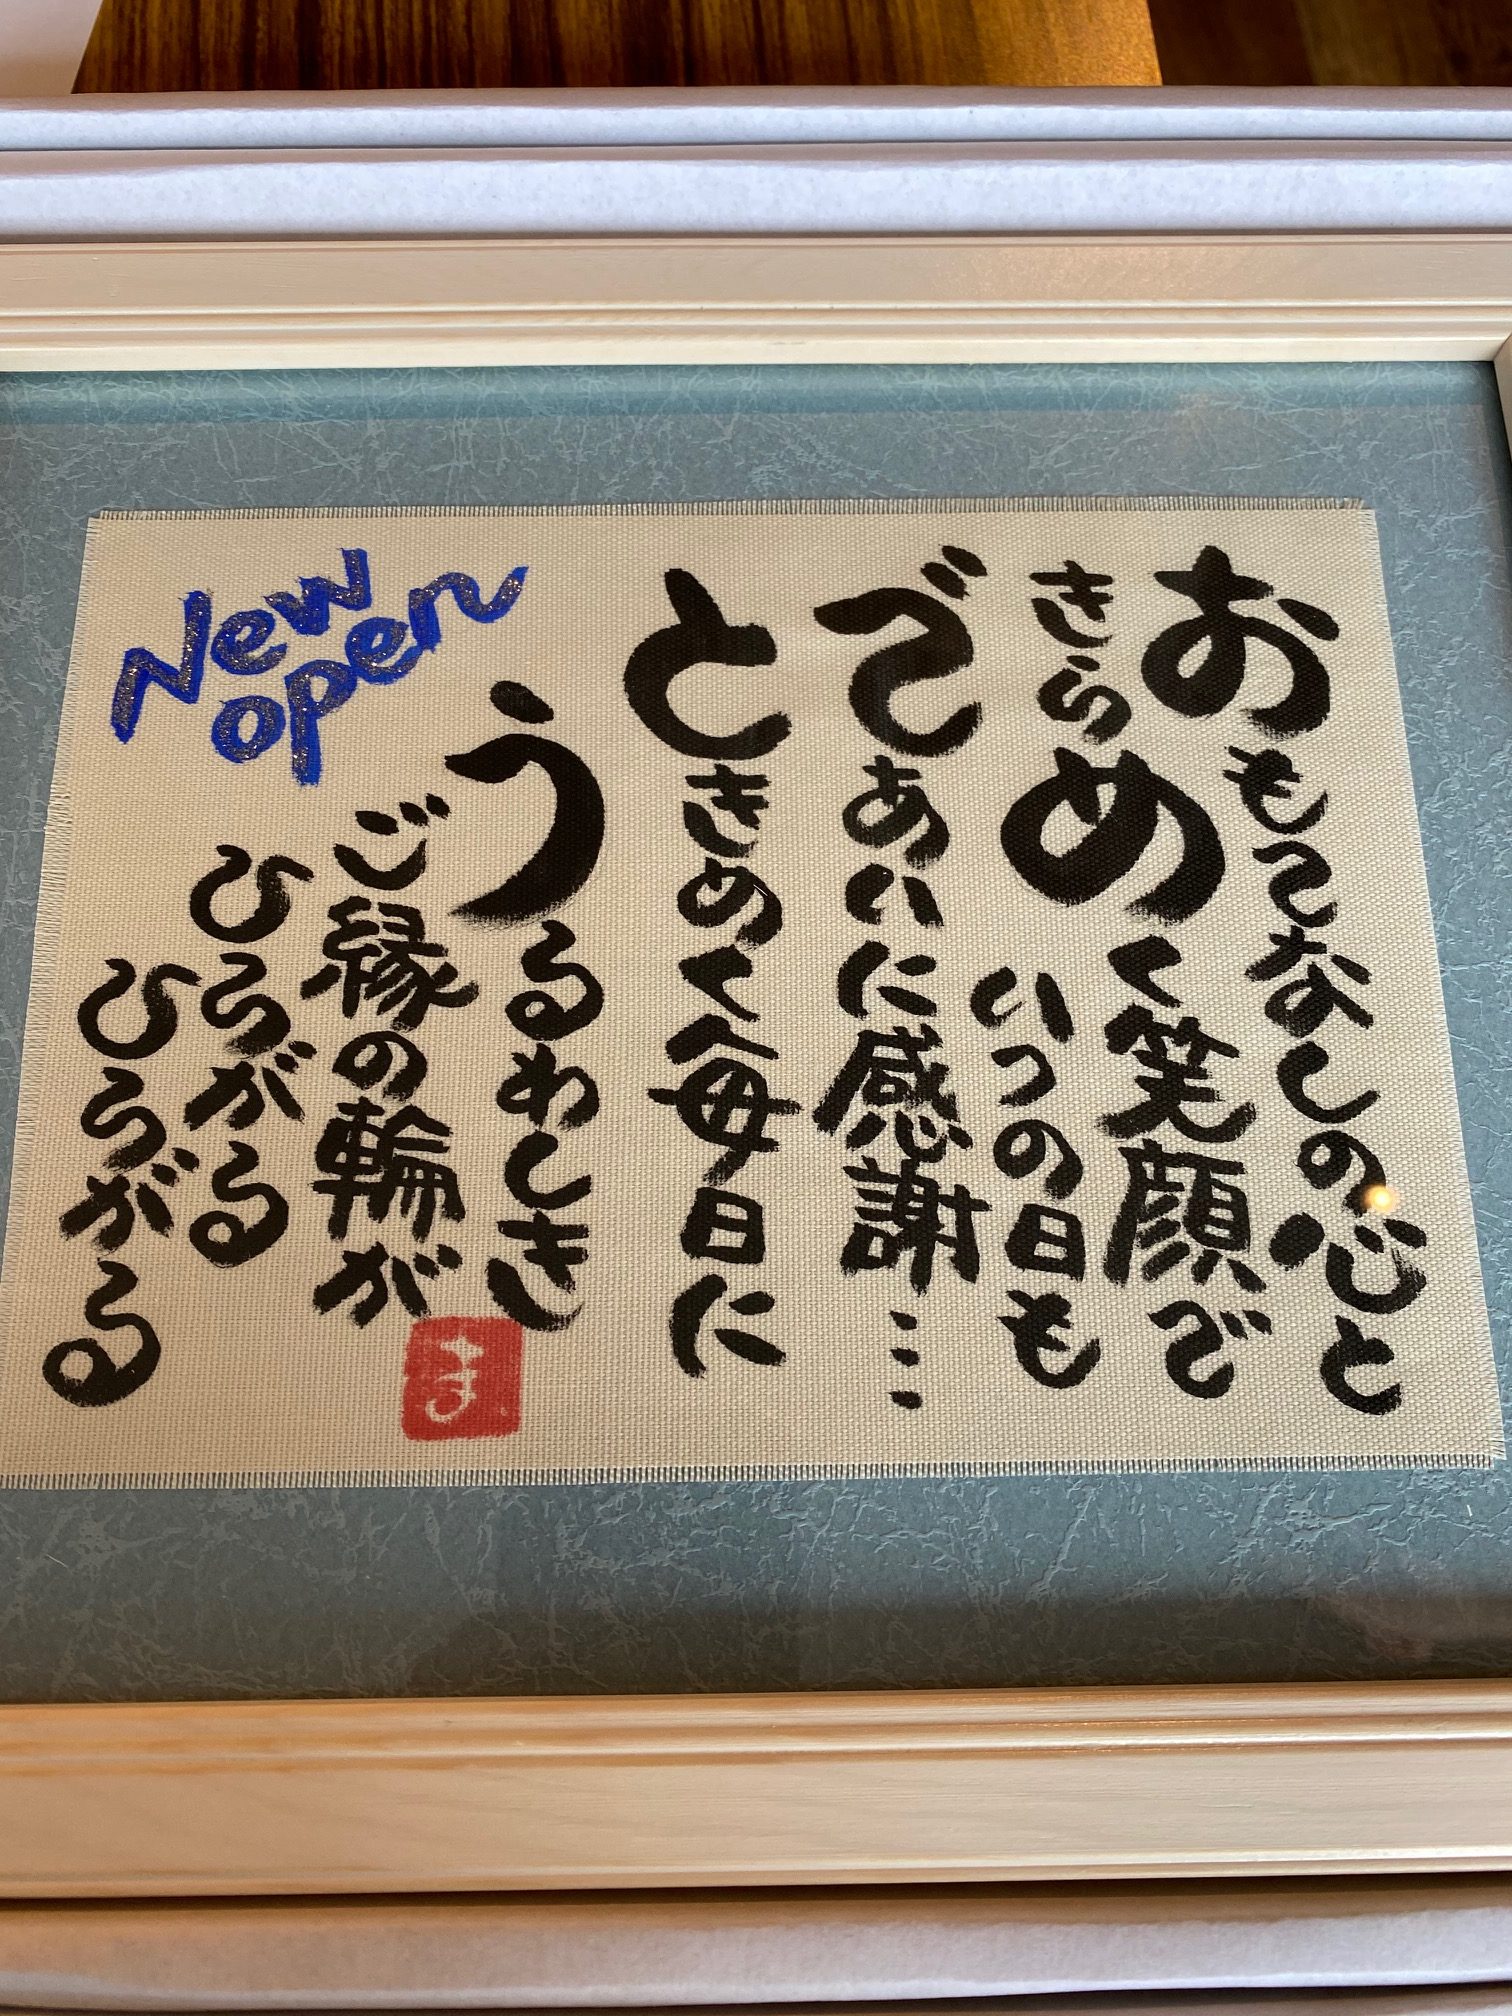 おもてなしの心と
きらめく笑顔で
いつの日も
であいに感謝…
ときめく毎日に
うるわしき
ご縁の輪が
ひろがる
ひろがる
New
open